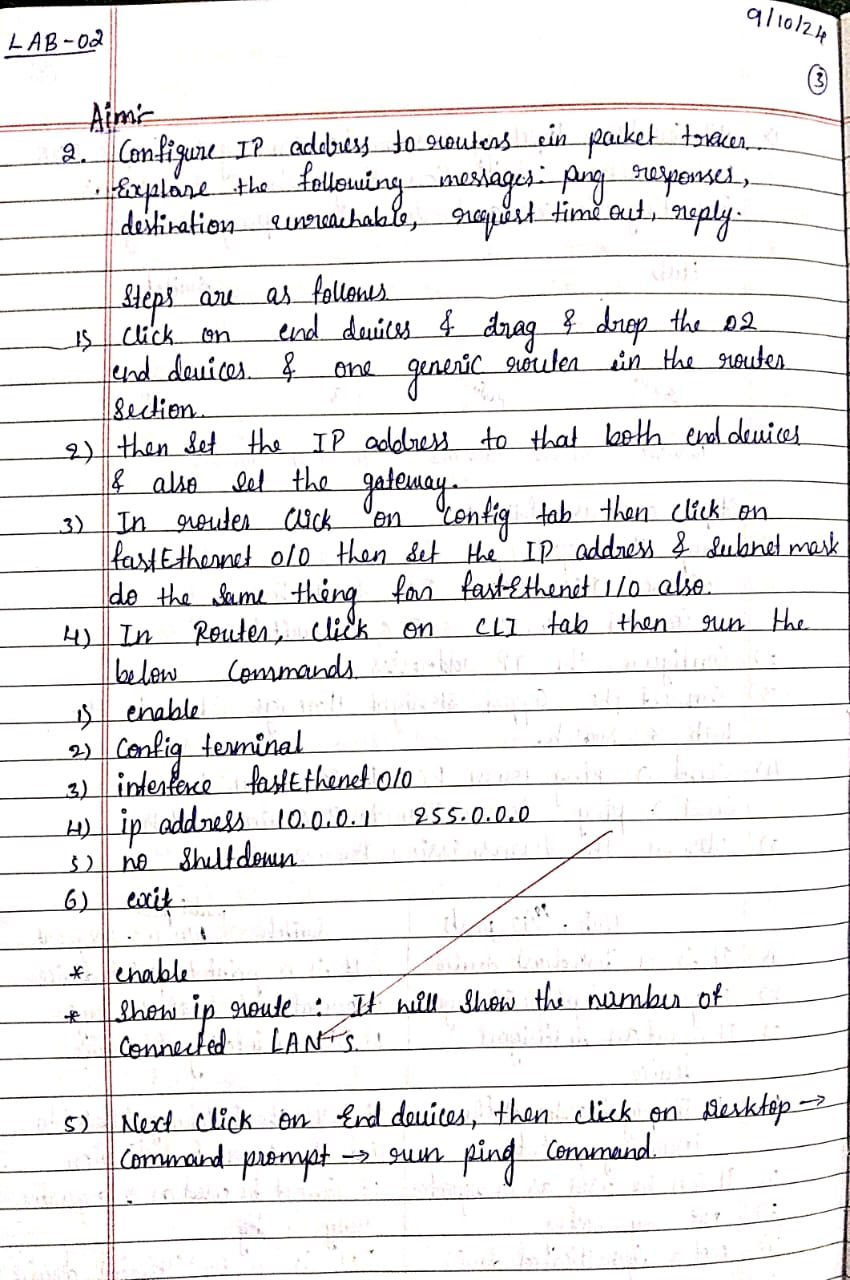 LAB-02
9/10/24
3
Aim:-
2. Configure IP address to routers in packet tracer.
Explore the following messages: ping responses,
destination unreachable, request time out, reply.
Steps are as follows
1) Click on end devices & drag & drop the 02
end devices & one generic router in the router
Section.
2) then set the IP address to that both end devices
& also set the gateway.
3) In router Click on Config tab then click on
fastEthernet 0/0 then set the IP address & subnet mask
do the same thing for fastEthenet 1/0 also.
4) In Router, click on CLI tab then run the
below Commands
1) enable
2) Config terminal
3) interfece fastEthenet 0/0
4) ip address 10.0.0.1 255.0.0.0
5) no Shutdown
6) exit.
* enable
* Show ip route : It will show the number of
Connected LAN's.
5) Next click on End devices, then click on Desktop →
Command prompt → run ping Command.